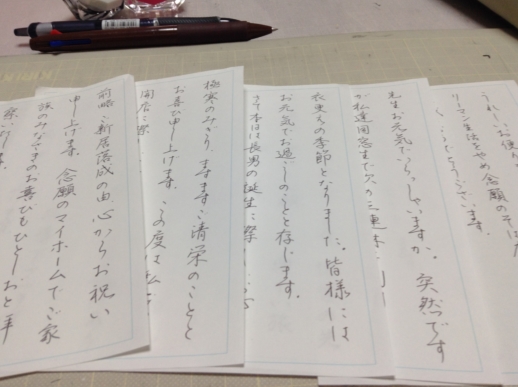 うれしいお便り
リーマン生活をやめ念願のそば
くございます。
先生お元気でいらっしゃいますか。突然です
が私達同窓生で
衣更えの季節となりました。皆様には
お元気でお過しのことと存じます。
さて本日は長男の誕生に際し
極寒のみぎり、ますますご清栄のことと
お喜び申し上げます。この度は私
開店に際し
前略 ご新居落成の由、心からお祝い
申し上げます。念願のマイホームでご家
族のみなさまのお喜びもひとしおと拝
察いたします。